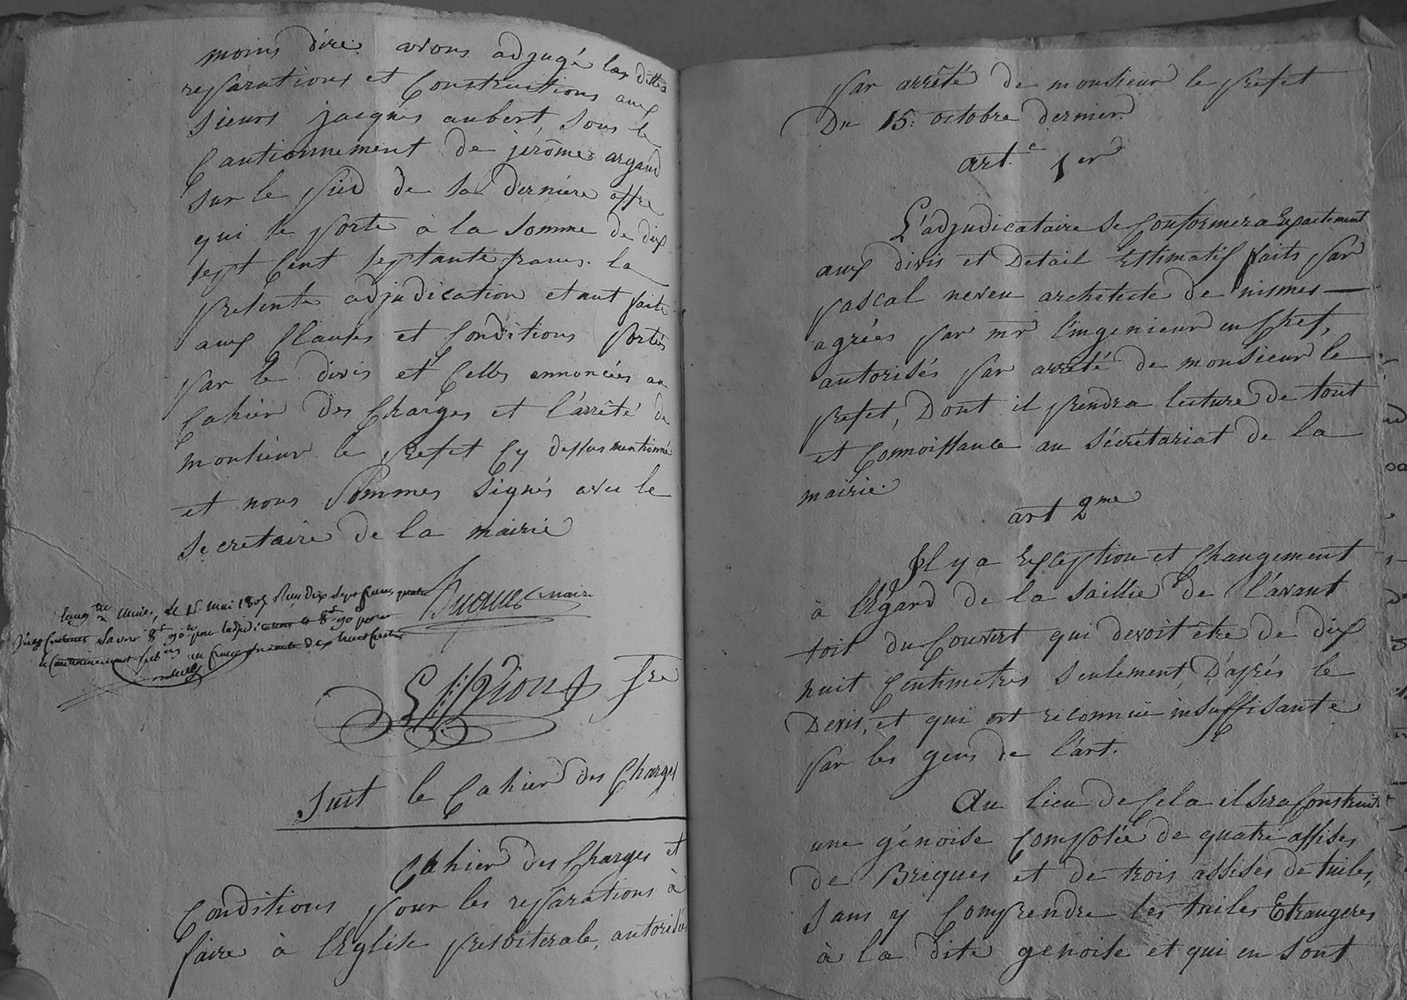 moins dire. avons adjugé les dittes
reparations et Constructions aux
sieurs jacques aubert, sous le
Cautionnement de jerôme argaud
sur le pied de sa derniere offre
qui se porte à la somme de dix
sept Cent septante francs. la
presente adjudication etant faite
aux Clauses et Conditions portés
par le divis et Celles ennoncées au
Cahier des Charges et l'arrêté de
monsieur le prefet Cy dessus mentionné
et nous sommes signés avec le
secretaire de la mairie
maire
le 15 mai 1807
sre
suit le Cahier des Charges
Cahier des Charges et
Conditions pour les reparations à
faire à l'Eglise presbiterale, autorisées
par arrêté de monsieur le prefet
Du 15. octobre dernier.
art.e 1er
L'adjudicataire se Conformera Exactement
aux divis et Detail Estimatif faits par
pascal neveu architecte de nismes —
agréés par mr l'ingenieur en Chef,
autorisés par arrêté de monsieur le
prefet, Dont il prendra lecture de tout
et Connoissance au sécrétariat de la
mairie.
art 2me
Il y a Exception et Changement
à l'Egard de la saillie de l'avant
toit du Couvert qui devoit être de dix
huit Centimetres seulement D'après le
Devis, et qui est reconnüe insuffisante
par les gens de l'art.
Au lieu de Cela il sera Construit
une génoise Composée de quatre assises
de Briques et de trois assises de tuiles,
sans y Comprendre les tuiles Etrangeres
à la dite genoise et qui en sont